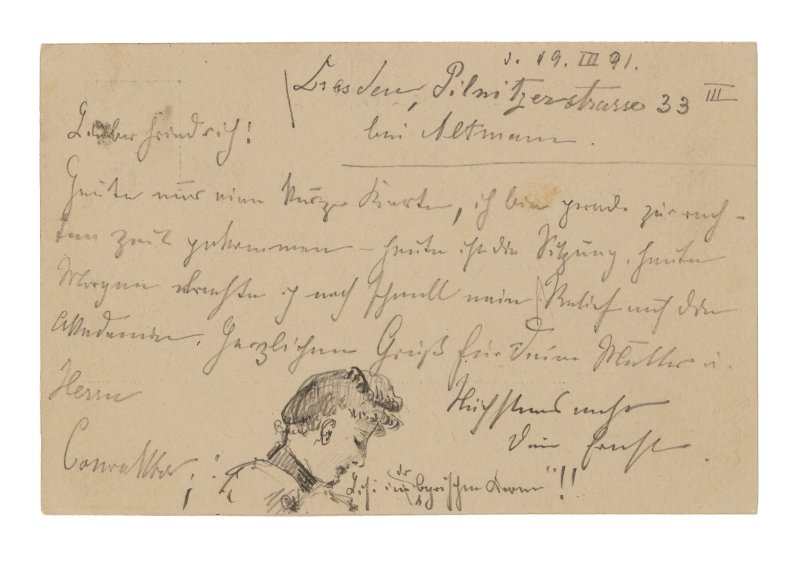 d. 19. III 91.
Dresden, Pilnitzerstrasse 33 III
bei Altmann.
Lieber Friedrich!
Heute nur eine kurze Karte, ich bin grade zur rech-
ten Zeit gekommen – heute ist die Sitzung, heute
Morgen brachte ich noch schnell mein Relief auf die
Akademie. Herzlichen Gruß für Deine Mutter u.
Herrn
Nächstens mehr
Dein Ernst.
"!!